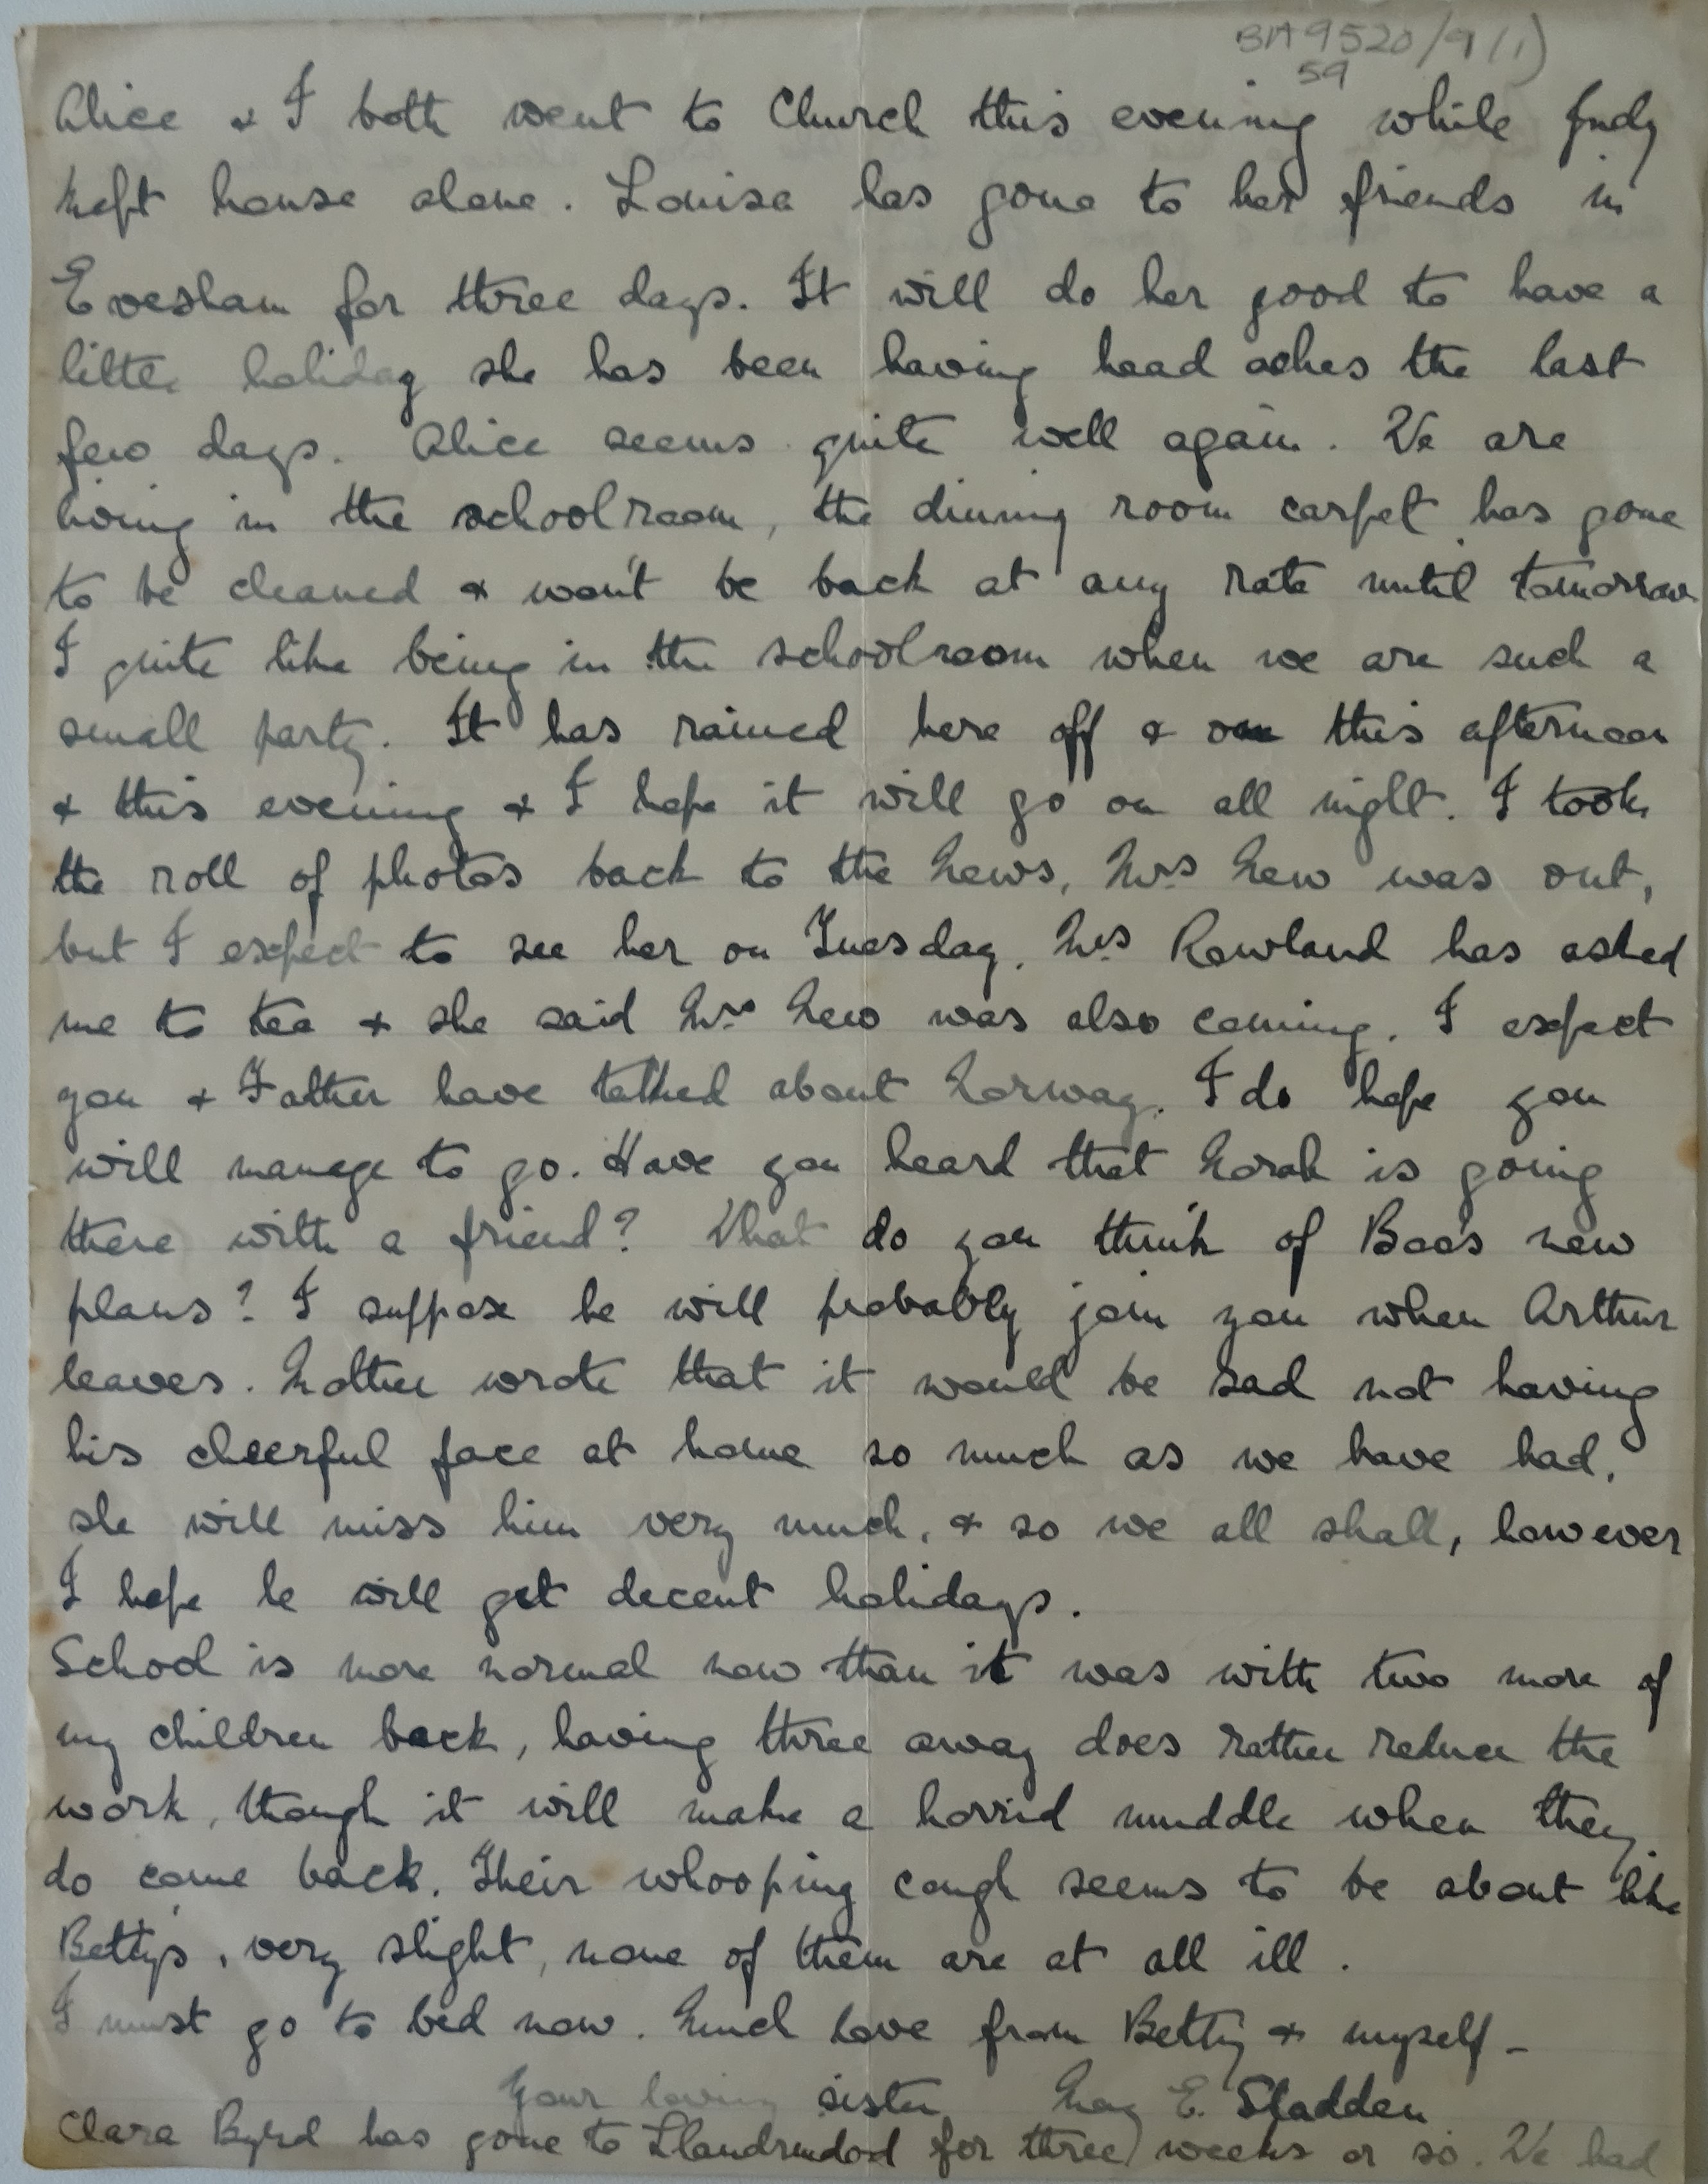 BA 9520/9(1)
59
Alice & I both went to Church this evening while Judy
kept house alone. Louisa has gone to her friends in
Evesham for three days. It will do her good to have a
little holiday she has been having head aches the last
few days. Alice seems quite well again. We are
living in the schoolroom, the dining room carpet has gone
to be cleaned & won't be back at any rate until tomorrow
I quite like being in the schoolroom when we are such a
small party. It has rained here off & on this afternoon
& this evening & I hope it will go on all night. I took
the roll of photos back to the News, Mrs New was out,
but I expect to see her on Tuesday. Mrs Rowland has asked
me to tea & she said Mrs New was also coming. I expect
you & Father have talked about Norway. I do hope you
will manage to go. Have you heard that Norah is going
there with a friend? What do you think of Boo's new
plans? I suppose he will probably join you when Arthur
leaves. Mother wrote that it would be sad not having
his cheerful face at home so much as we have had,
she will miss him very much, & so we all shall, however
I hope he will get decent holidays.
School is more normal now than it was with two more of
my children back, having three away does rather reduce the
work, though it will make a horrid muddle when they
do come back. Their whooping cough seems to be about like
Betty's, very slight, none of them are at all ill.
I must go to bed now. Much love from Betty & myself -
Your loving sister May E. Sladden
Clara Byrd has gone to Llandrindod for three weeks or so. We had